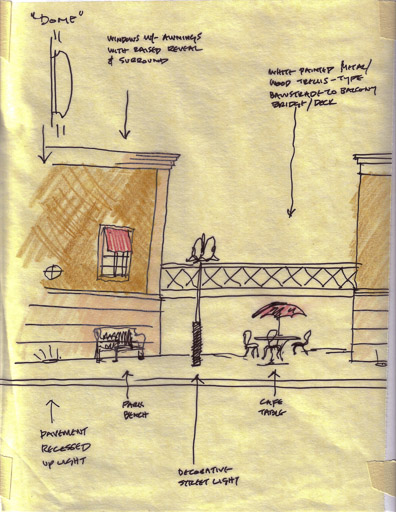 "DOME"
WINDOWS W/ AWNINGS
WITH RAISED REVEAL
& SURROUND
WHITE PAINTED METAL/
WOOD TRELLIS-TYPE
BALUSTRADE TO BALCONY
BRIDGE/DECK
PARK
BENCH
CAFE
TABLE
PAVEMENT
RECESSED
UP LIGHT
DECORATIVE
STREET LIGHT